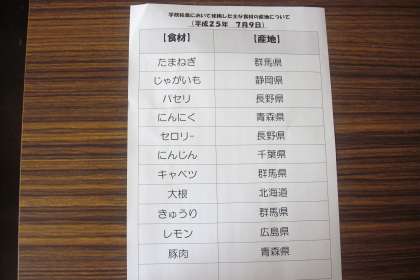 学校給食において使用した主な食材の産地について
（平成２５年　７月９日）
【食材】　【産地】
たまねぎ　群馬県
じゃがいも　静岡県
パセリ　長野県
にんにく　青森県
セロリー　長野県
にんじん　千葉県
キャベツ　群馬県
大根　北海道
きゅうり　群馬県
レモン　広島県
豚肉　青森県